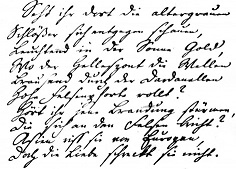 Seht ihr dort die altergrauen
Schlösser sich entgegen schauen,
Leuchtend in der Sonne Gold,
Wo der Hellespont die Wellen
Brausend durch der Dardanellen
Hohe Felsenpforte rollt?
Hört ihr jene Brandung stürmen,
Die sich an den Felsen bricht?
Asien riß sie von Europen
Doch die Liebe schreckt sie nicht.